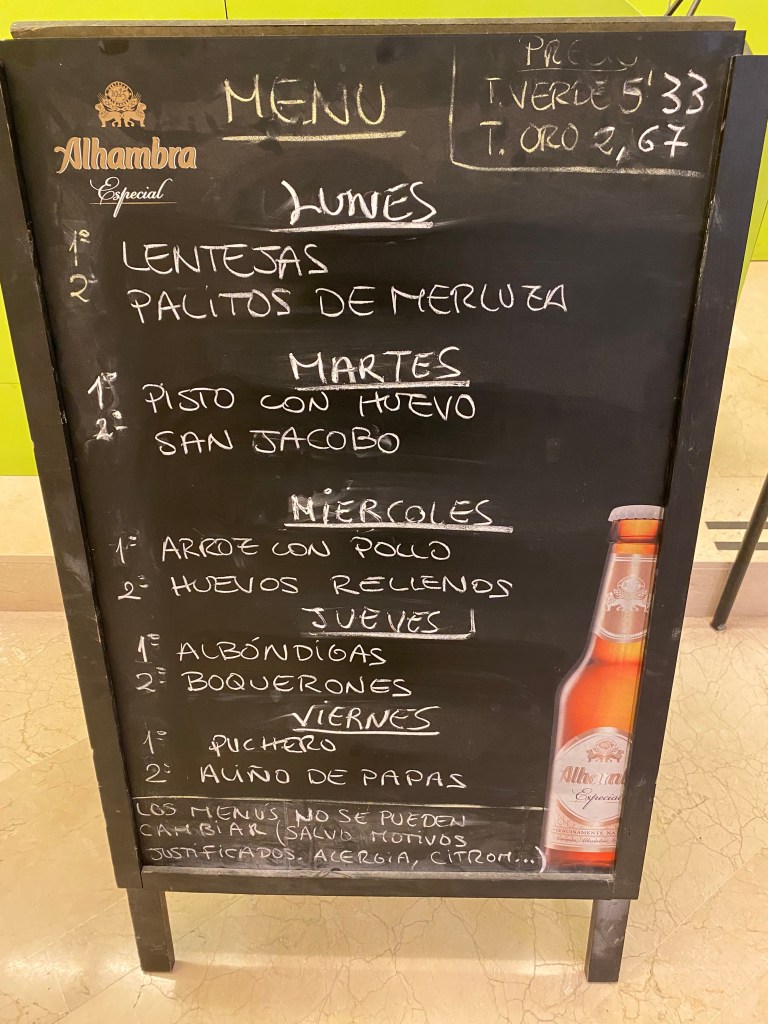 MENU
T. VERDE 5'33
T. ORO 2,67
Alhambra
Especial
LUNES
1º LENTEJAS
2º PALITOS DE MERLUZA
MARTES
1º PISTO CON HUEVO
2º SAN JACOBO
MIÉRCOLES
1º ARROZ CON POLLO
2º HUEVOS RELLENOS
JUEVES
1º ALBÓNDIGAS
2º BOQUERONES
VIERNES
1º PUCHERO
2º ALIÑO DE PAPAS
LOS MENÚS NO SE PUEDEN
CAMBIAR (SALVO MOTIVOS
JUSTIFICADOS. ALERGIA, CITROM...)
Alhambra
Especial